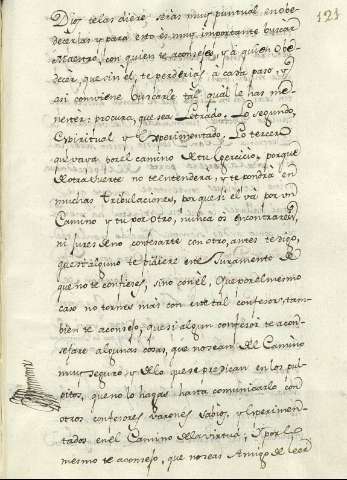 121
Dios telas diere, seras muy puntual en obe-
decerlas y para esto es muy importante buscar
Maestro, con quien te aconsejes, y à quien obe-
decer, que sin el, te perderias à cada paso, y
asi conviene buscarle tal qual le has me-
nester: procura, que sea Letrado. Lo segundo,
Espiritual y Experimentado. Lo tercero
que vaya por el camino de tu exercicio, porque
de otra suerte no te entendera, y te pondrà en
muchas tribulaciones, porque si el và por un
Camino y tu por otro, nunca os encontrareis,
ni jures de no confesarte con otro, antes te digo,
que si alguno te diere en el Juramento de
que no te confieses, sino con èl, que por el mesmo
caso no tornes màs con este tal confesor, tam-
bien te aconsejo, que si algun confesor te acon-
sejare algunas cosas, que no sean del Camino
muy seguro, y de lo que se predican en los pul-
pitos, que no lo hagas hasta comunicarlo con
otros confesores varones sabios, y experimen-
tados en el Camino de la virtud, y por lo
mesmo te aconsejo, que no seas Amigo de leer